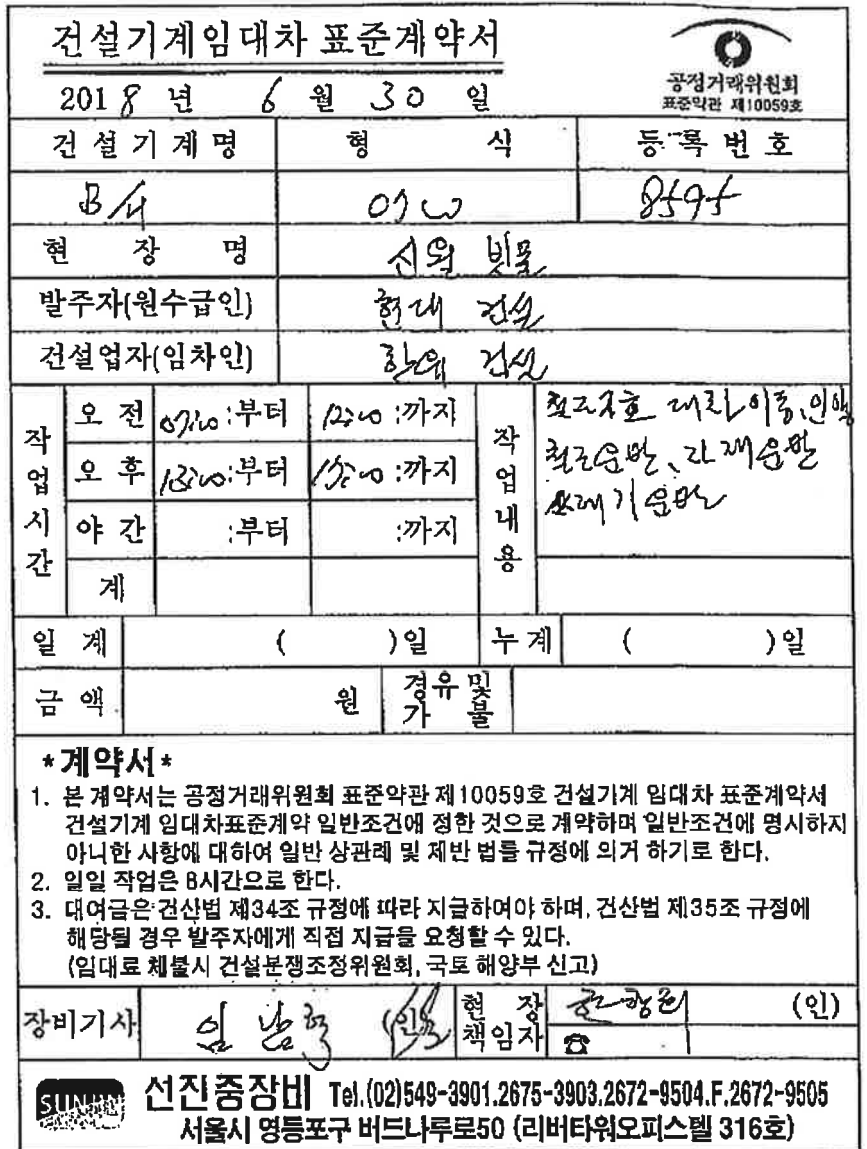 건설기계임대차 표준계약서
공정거래위원회
표준약관 제10059호
2018년 6월 30일
건설기계명 형식 등록번호
B/H 07W 8595
현장명 신월 빗물
발주자(원수급인) 현대 건설
건설업자(임차인) 건설
작업시간
오전 07:00:부터 12:00:까지
오후 13:00:부터 :까지
야간 :부터 :까지
계
작업내용
이동, 인양
운반, 자재운반
쓰레기운반
일계 ( )일 누계 ( )일
금액 원 경유 및 가불
*계약서*
1. 본 계약서는 공정거래위원회 표준약관 제10059호 건설기계 임대차 표준계약서
건설기계 임대차표준계약 일반조건에 정한 것으로 계약하며 일반조건에 명시하지
아니한 사항에 대하여 일반 상관례 및 제반 법률 규정에 의거 하기로 한다.
2. 일일 작업은 8시간으로 한다.
3. 대여금은 건산법 제34조 규정에 따라 지급하여야 하며, 건산법 제35조 규정에
해당될 경우 발주자에게 직접 지급을 요청할 수 있다.
(임대료 체불시 건설분쟁조정위원회, 국토 해양부 신고)
장비기사 임남혁 (인) 현장책임자 (인)
☎
SUNJIN 선진중장비 Tel.(02)549-3901.2675-3903.2672-9504.F.2672-9505
서울시 영등포구 버드나루로50 (리버타워오피스텔 316호)